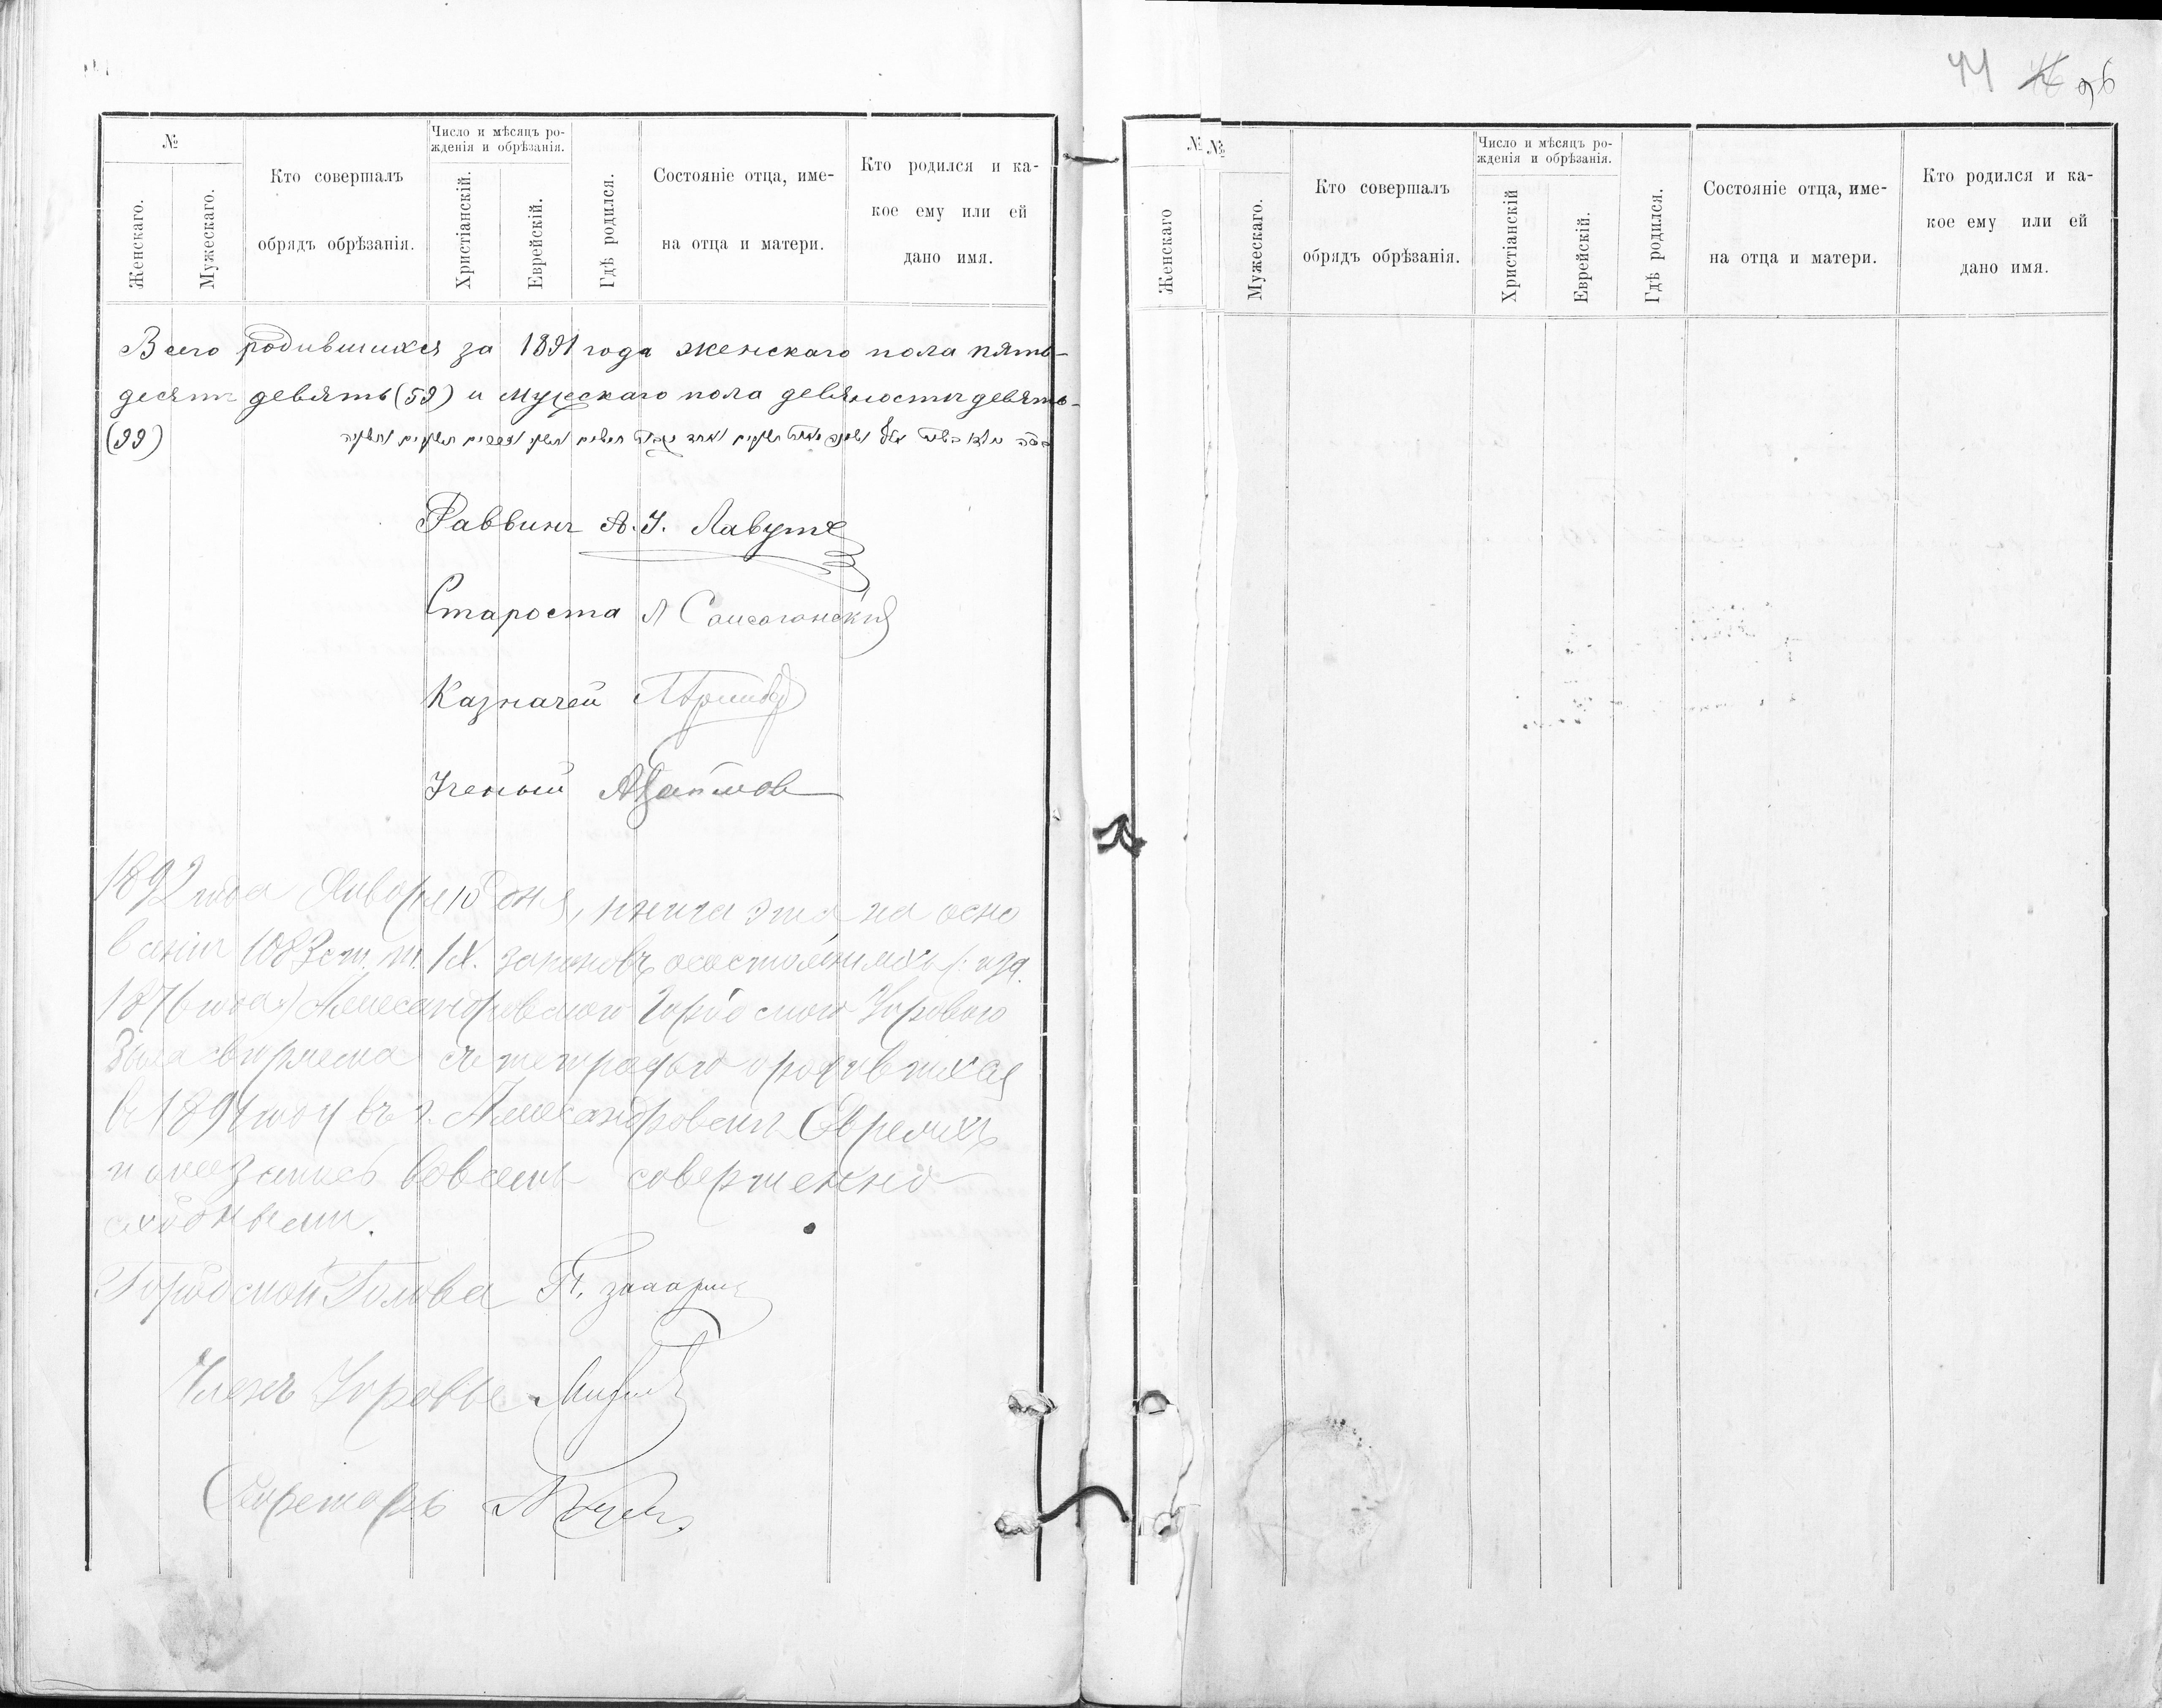 №
Женскаго.
Мужескаго.
Кто совершалъ
обрядъ обрѣзанія.
Число и мѣсяцъ ро-
жденія и обрѣзанія.
Христіанскій.
Еврейскій.
Гдѣ родился.
Состояніе отца, име-
на отца и матери.
Кто родился и ка-
кое ему или ей
дано имя.
Всего родившихся за 1891 года женскаго пола пять-
десятъ девять (59) и мужескаго пола девяносто девять-
(99)
Раввинъ А. І. Лавутъ
Староста
Казначей
Ученый
1892 года Января 10 дня, книга эта на осно
ваніи 1083 ст. т. IX. законовъ о состояніяхъ /: изд.
1876 года:/ Александровскою Городскою Управою
была свѣрена съ тетрадью о родившихся
въ 1891 году въ г. Александровскѣ Евреяхъ
и оказались во всемъ совершенно
сходными.
Городской Голова
Членъ Управы
Секретарь
44 96
№ №
Женскаго
Мужескаго.
Кто совершалъ
обрядъ обрѣзанія.
Число и мѣсяцъ ро-
жденія и обрѣзанія.
Христіанскій
Еврейскій.
Гдѣ родился.
Состояніе отца, име-
на отца и матери.
Кто родился и ка-
кое ему или ей
дано имя.